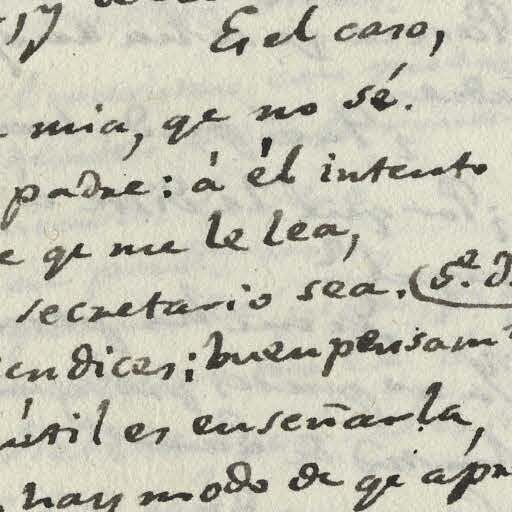 Es el caso,
mia, qe no sé.
padre: á él intento
qe me le lea,
secretario sea.
endices; buen pensam
util es enseñarla,
hay modo de qe apr